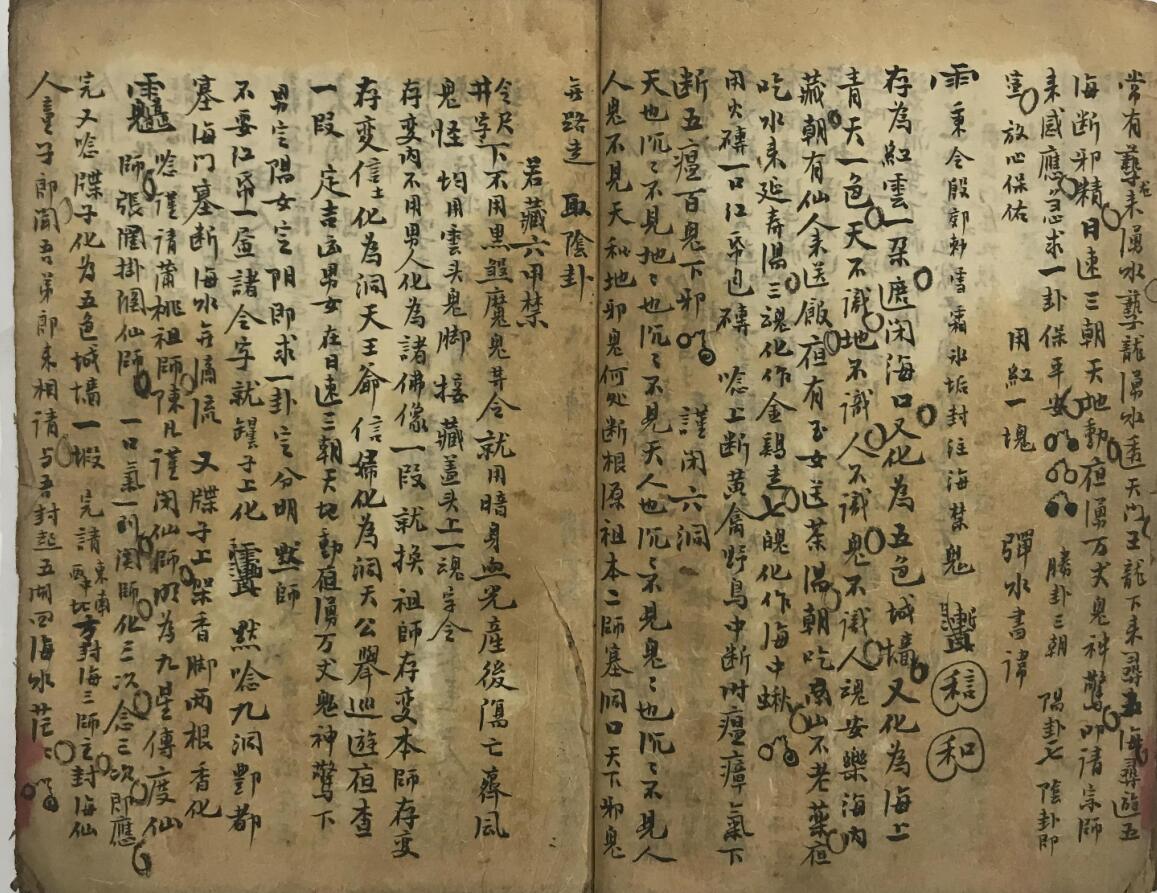 常有孽来湧水孽龍湧水透天门王龍下来尋五海尋遊五
海断邪精日連三朝天地動夜湧万丈鬼神驚叩請宗師
来感應忽求一卦保平安 勝卦三朝 陽卦七 陰卦即
放心保佑 用紅一塊 彈水書諱
秉令殷郊勅雪霜氷垢封住海禁鬼 信 和
存為紅雲一朶遮闭海口又化為五色城墙又化為海上
青天一色天不識地地不識人人不識鬼鬼不識人魂安樂海内
藏朝有仙人来送飯夜有玉女送茶湯朝吃南山不老藥夜
吃水来延寿湯三魂化作金鷄走七魄化作海中蝦
用火磚一口江帋包磚 唸上断黄禽野鳥中断时瘟瘴氣下
断五瘟百鬼下邪 謹闭六洞
天也沉沉不見地地也沉沉不見天人也沉沉不見鬼鬼也沉沉不見人
人鬼不見天和地邪鬼何处断根源祖本二師塞洞口天下邪鬼
無路走 取陰卦
若藏六甲禁
井字令尺下不用黑殺魔鬼井令就用暗身血光產後陽亡痨風
鬼怪均用雲头鬼脚 接藏盖头上一魂字令
存变内不用男人化為諸佛像一段就換祖師存变本師存变
存变信士化為洞天王爺信婦化為洞天公舉巡遊夜查
一段 定吉凶男女在日連三朝天地動夜湧万丈鬼神驚下
男定陽女定阴即求一卦定分明 默師
不要江帋一层諸令字就罐子上化 默唸九洞酆都
塞海门塞断海水無滴流 又牒子上架香脚两根香化
唸謹請蒲桃祖師陳凡謹闭仙師明為九星傳度仙
師張闊掛闊仙師 一口氣一刖闵師化三次念三次即應
完又唸牒子化為五色城墙一塅 完請東南西北方封海三師主封海仙
人童子郎聞吾弟郎来相請与吾封起五湖四海水茫茫